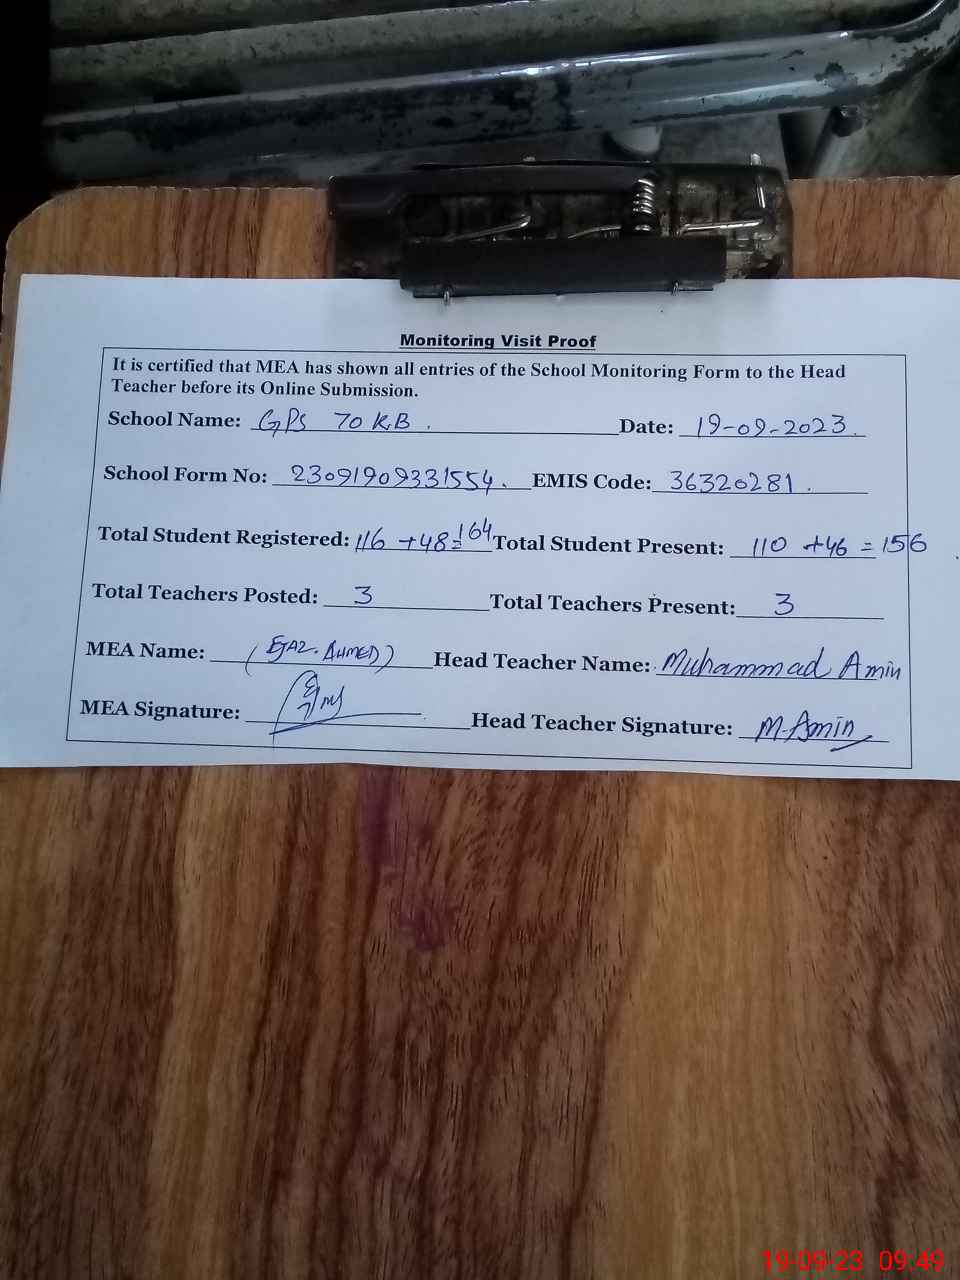 Monitoring Visit Proof
It is certified that MEA has shown all entries of the School Monitoring Form to the Head
Teacher before its Online Submission.
School Name: GPS 70 KB . Date: 19-09-2023.
School Form No: 23091909331554. EMIS Code: 36320281.
Total Student Registered: 116 +48=164 Total Student Present: 110 +46 = 156
Total Teachers Posted: 3 Total Teachers Present: 3
MEA Name: (EJAZ. AHMED) Head Teacher Name: Muhammad Amin
MEA Signature: Head Teacher Signature: M-Amin
19-09-23 09:49